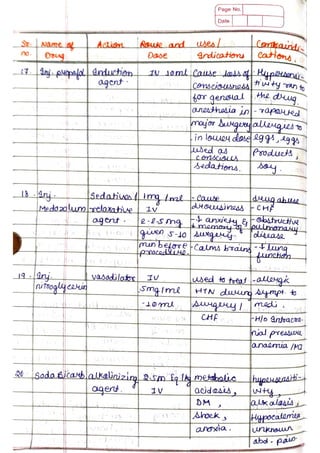 Page No.
Date
Sr. no. Name of Drug Action Route and Dose Uses/ Indications Contraindications.
17. Inj. propofol Induction agent. IV 10ml Cause loss of consciousness for general anesthesia in major surgery. in lower dose used as conscious sedations. Hypersensitivity to the drug. - reported allergies to eggs, eggs products, soy.
18. Inj. Medozolum Sedatives/ relaxative agent. 1mg/ml IV 2-2.5mg given 5-10 min before procedure. - cause drowsiness - ↓ anxiety & ↓ memory of surgery. - Calms brains drug abuse - CHF - obstructive pulmonary disease - ↓ lung function
19. Inj. nitroglycerin vasodilator IV 5mg/ml -10ml used to treat HTN during surgery / CHF - allergic sympt to medi. - H/o Intracranial pressure anaemia /MI
20 Soda Bicarb alkalinizing agent. IV metabolic acidosis, DM, shock, anoxia. hypersensitivity, alkalosis, Hypocalcemia unknown abd. pain